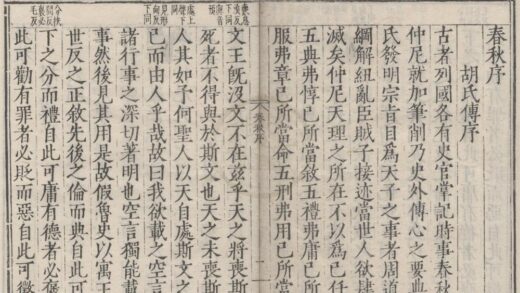 春秋序
胡氏傳序
古者列國各有史官掌記時事春秋
仲尼就加筆削乃史外傳心之要典
氏發明宗旨目為天子之事者周道
綱解紐亂臣賊子接迹當世人欲肆
滅矣仲尼天理之所在不以為己任
五典弗惇己所當敘五禮弗庸己所
服弗章己所當命五刑弗用己所當
春秋序
一
文王既没文不在兹乎天之將喪斯
死者不得與於斯文也天之未喪斯
人其如予何聖人以天自處斯文之
己而由人乎哉故曰我欲載之空言
諸行事之深切著明也空言獨能載
事然後見其用是故假魯史以寓王
世反之正敘先後之倫而典自此可
下之分而禮自此可庸有德者必褒
此可勸有罪者必貶而惡自此可